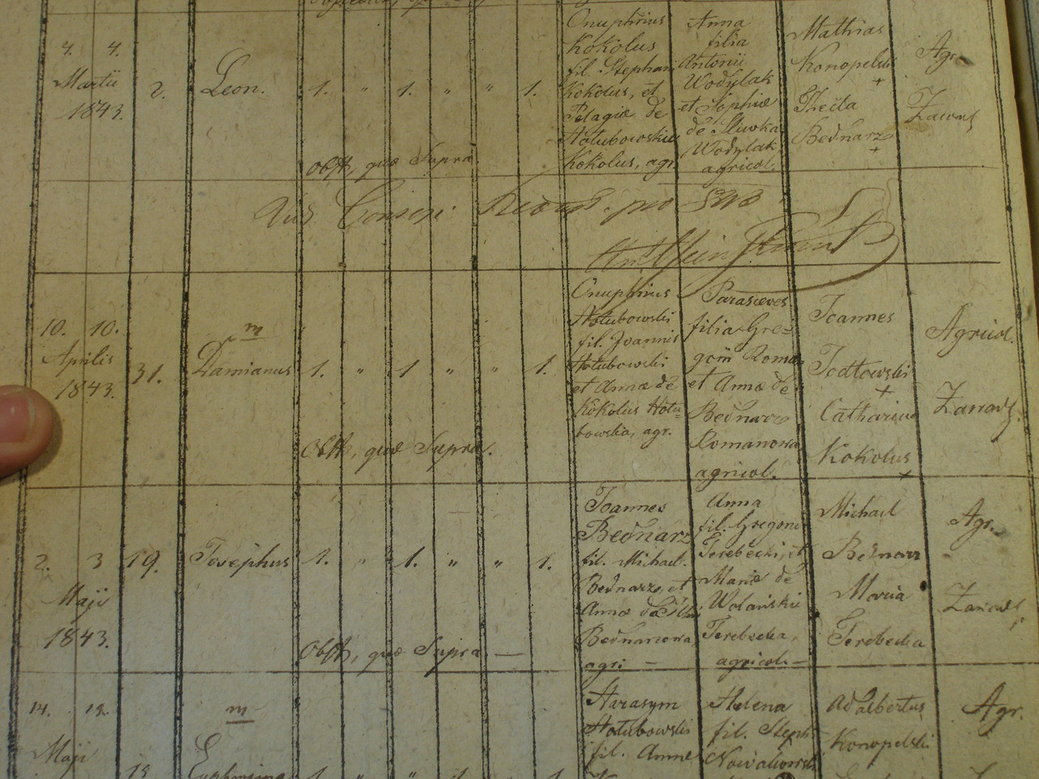 4. 4.
Martii
1843.
2.
Leon.
1. " 1. " " 1.
Obst, quae Supra.
Onuphrius
Kokolus
fil. Stephani
Kokolus, et
Pelagiae de
Hołubowskie
Kokolus, agr.
Anna
filia
Antonii
Wodylak
et Sophiae
de Sliwka
Wodylak
agricol.
Mathias
Konopelski
+
Thecla
Bednarz
+
Agr.
Zawad
10. 10.
Aprilis
1843.
31.
m
Damianus
1. " 1 " " 1.
Obst, quae Supra.
Onuphrius
Hołubowski
fil. Joannis
Hołubowski
et Annae de
Kokolus Hołu-
bowskia, agr.
Parasceves
filia Gre-
gorii Roman
et Annae de
Bednarz
Romanowa
agricol.
Joannes
Jodłowski
+
Catharina
Kokolus
+
Agricol.
Zawad
2. 3
Maji
1843.
19.
Josephus
1. " 1. " " 1.
Obst, quae Supra —
Joannes
Bednarz
fil. Michael.
Bednarz, et
Annae de
Bednarowa
agri —
Anna
fil. Gregorii
Terebecki et
Mariae de
Wolański
Terebecka,
agricol —
Michael
Bednarz
Maria
Terebecka
Agr.
Zawad
14. 15.
Maji
15.
m
Euphrosina
Harasym
Hołubowski
fil. Annae
Helena
fil. Steph
Adalbertus
Konopelski
Agr.